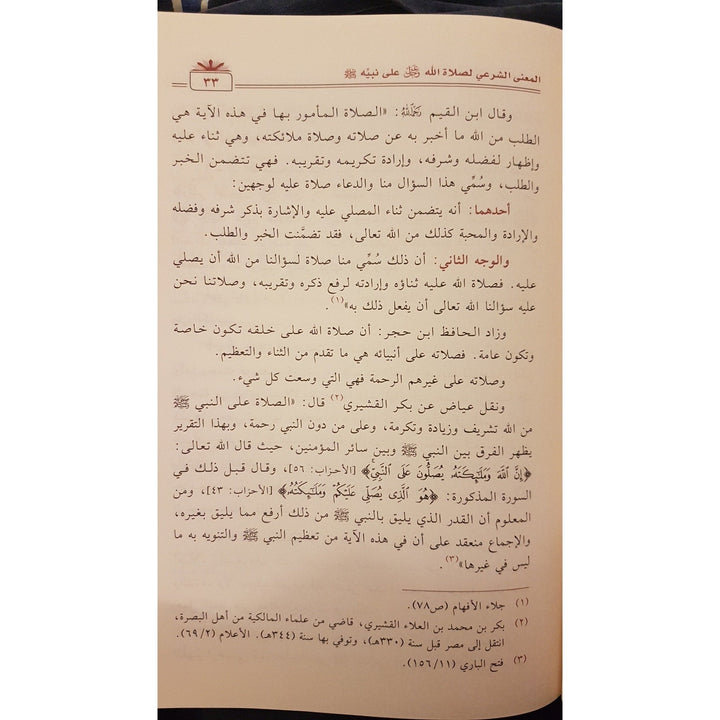 المعنى الشرعي لصلاة الله ﷻ على نبيّه ﷺ
٣٣
وقال ابن القيم رحمه الله: «الصلاة المأمور بها في هذه الآية هي
الطلب من الله ما أخبر به عن صلاته وصلاة ملائكته، وهي ثناء عليه
وإظهار لفضله وشرفه، وإرادة تكريمه وتقريبه. فهي تتضمن الخبر
والطلب، وسُمِّي هذا السؤال منا والدعاء صلاة عليه لوجهين:
أحدهما: أنه يتضمن ثناء المصلي عليه والإشارة بذكر شرفه وفضله
والإرادة والمحبة كذلك من الله تعالى، فقد تضمَّنت الخبر والطلب.
والوجه الثاني: أن ذلك سُمِّي منا صلاة لسؤالنا من الله أن يصلي
عليه. فصلاة الله عليه ثناؤه وإرادته لرفع ذكره وتقريبه، وصلاتنا نحن
عليه سؤالنا الله تعالى أن يفعل ذلك به»(١).
وزاد الحافظ ابن حجر: أن صلاة الله على خلقه تكون خاصة
وتكون عامة. فصلاته على أنبيائه هي ما تقدم من الثناء والتعظيم.
وصلاته على غيرهم الرحمة فهي التي وسعت كل شيء.
ونقل عياض عن بكر القشيري(٢) قال: «الصلاة على النبي ﷺ
من الله تشريف وزيادة وتكرمة، وعلى من دون النبي رحمة، وبهذا التقرير
يظهر الفرق بين النبي ﷺ وبين سائر المؤمنين، حيث قال الله تعالى:
﴿إِنَّ ٱللَّهَ وَمَلَٰٓئِكَتَهُۥ يُصَلُّونَ عَلَى ٱلنَّبِيِّ﴾ [الأحزاب: ٥٦]، وقال قبل ذلك في
السورة المذكورة: ﴿هُوَ ٱلَّذِى يُصَلِّى عَلَيْكُمْ وَمَلَٰٓئِكَتُهُۥ﴾ [الأحزاب: ٤٣]، ومن
المعلوم أن القدر الذي يليق بالنبي ﷺ من ذلك أرفع مما يليق بغيره،
والإجماع منعقد على أن في هذه الآية من تعظيم النبي ﷺ والتنويه به ما
ليس في غيرها»(٣).
(١) جلاء الأفهام (ص٧٨).
(٢) بكر بن محمد بن العلاء القشيري، قاضي من علماء المالكية من أهل البصرة،
انتقل إلى مصر قبل سنة (٣٣٠هـ)، وتوفي بها سنة (٣٤٤هـ). الأعلام (٦٩/٢).
(٣) فتح الباري (١٥٦/١١).